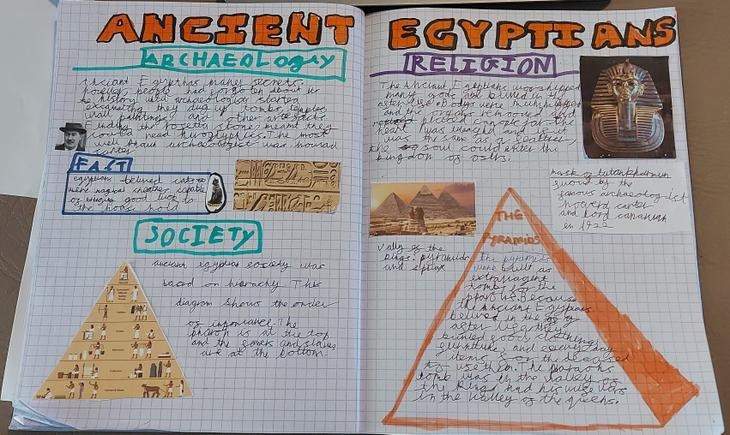 ANCIENT EGYPTIANS
ARCHAEOLOGY
Ancient Egypt has many secrets
foreign people had forgotten about
the history until archaeologist started
excavating they dug up tombs, temples
wall paintings and other artefacts
Finding the rosetta stone meant they
could read hieroglyphics. The most
well known archaeologist was howard
carter
FACT
egyptians believed cats
were magical creatures capable
of bringing good luck to
the house hold
SOCIETY
ancient egyptian society was
based on hierachy. This
diagram shows the order
of importance. The
pharoh is at the top
and the slaves
are at the bottom.
RELIGION
The Ancient Egyptians worshipped
many gods and belived in the
after life. Bodys were mummified
and the organs removed and
placed in jars exept for the
heart. was weighed and if it
was the same as a feather,
the soul could enter the
kingdom of
mask of tutankhamun
by the
famous archaeologist
howerd carter
and lord
in 1922
Vally of the
kings. piramids
and sphinx
THE
PYRAMIDS
the pyramids
were built as
extravagent
tombs for the
pharohs. Because
the Ancient Egyptians
belived in the
after life they
buried food, clothing
furniture, and everyday
items for the deceased
to use then. The pharaohs
tomb was in the valley of
the kings and his wife was
in the valley of the queens.